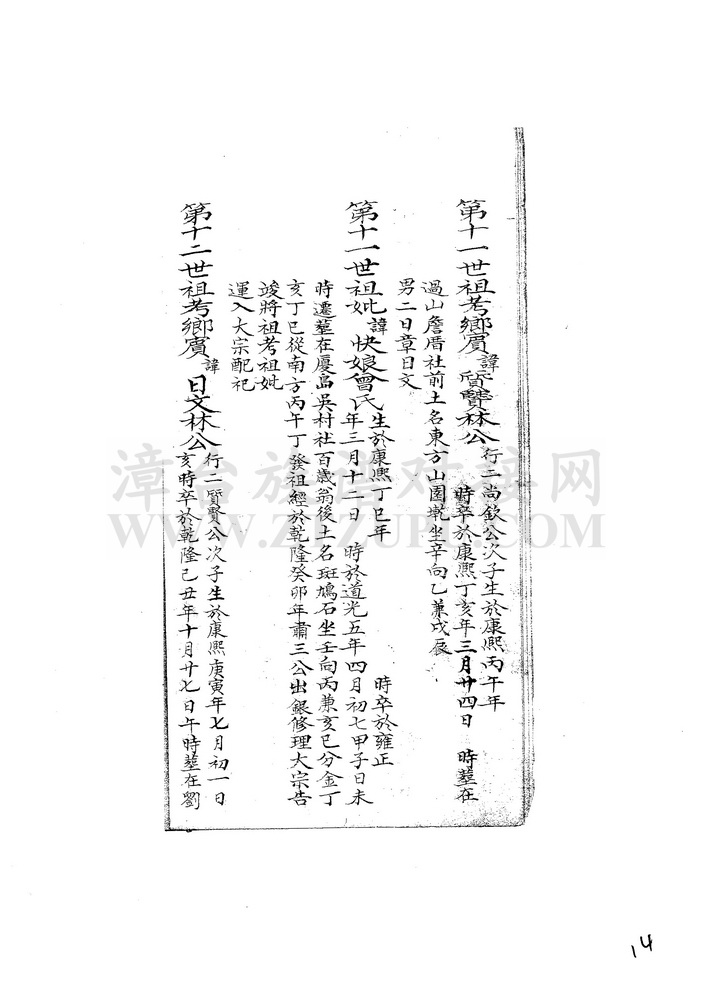 第十一世祖考鄉賓諱質賢林公行二尚欽公次子生於康熙丙午年
時卒於康熙丁亥年三月廿四日 時墓在
過山詹厝社前土名東方山園墘坐辛向乙兼戌辰
男二日章日文
第十一世祖妣諱快娘曾氏生於康熙丁巳年 時卒於雍正
年三月十二日 時於道光五年四月初七甲子日未
時遷墓在廈島吳村社百歲翁後土名斑鳩石坐壬向丙兼亥巳分金丁
亥丁巳從南方丙午丁發祖經於乾隆癸卯年肅三公出銀修理大宗告
竣將祖考祖妣
運入大宗配祀
第十二世祖考鄉賓諱日文林公行二質賢公次子生於康熙庚寅年七月初一日
亥時卒於乾隆己丑年十月廿七日午時墓在劉
漳台族谱对接网
WWW.ZTZUPU.COM
14